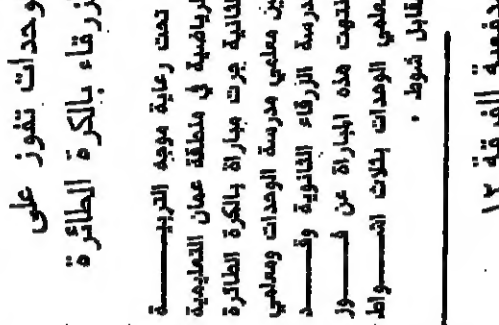 وحدات تفوز على
زرقاء بالكرة الطائرة
تحت رعاية موجه التربيــة
لرياضية في منطقة عمان التعليمية
لثانية جرت مباراة بالكرة الطائرة
ين معلمي مدرسة الوحدات ومعلمي
درسة الزرقاء الثانوية وقــد
نتهت هذه المباراة عن فــوز
علمي الوحدات بثلاث اشــواط
قابل شوط .
الفرقة ١٢